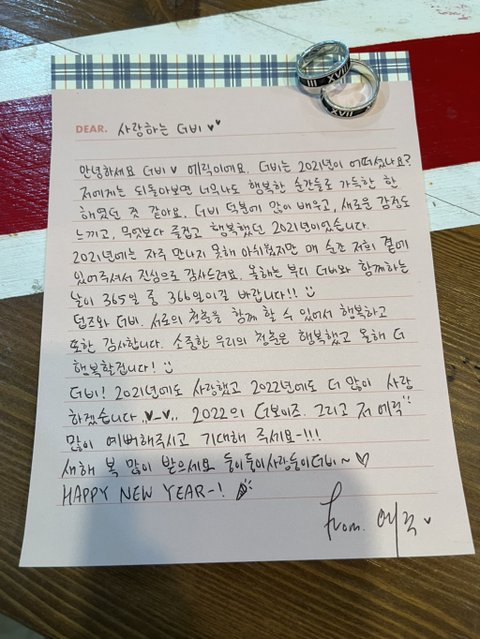 III XVII
XVII
DEAR. 사랑하는 더비♥♥
안녕하세요 더비♥ 에릭이에요. 더비는 2021년이 어떠셨나요?
저에게는 되돌아보면 너무나도 행복한 순간들로 가득한 한
해였던 것 같아요. 더비 덕분에 많이 배우고, 새로운 감정도
느끼고, 무엇보다 즐겁고 행복했던 2021년이었습니다.
2021년에는 자주 만나지 못해 아쉬웠지만 매 순간 저희 곁에
있어주셔서 진심으로 감사드려요. 올해는 부디 더비와 함께하는
날이 365일 중 366일이길 바랍니다!! :)
더보이즈와 더비. 서로의 청춘을 함께 할 수 있어서 행복하고
또한 감사합니다. 소중한 우리의 청춘은 행복했고 올해 더
행복할겁니다! :)
더비! 2021년에도 사랑했고 2022년에도 더 많이 사랑
하겠습니다..♥-♥.. 2022의 더보이즈. 그리고 저 에릭
많이 예뻐해주시고 기대해 주세요-!!!
새해 복 많이 받으세요 둥이둥이사랑둥이더비~♡
HAPPY NEW YEAR-!
from. 에릭♥